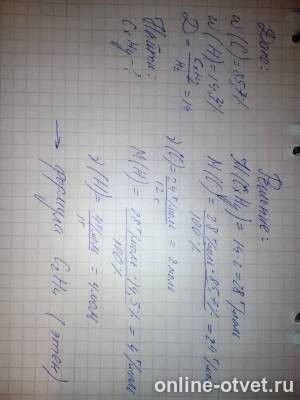 Дано:
w(C) = 85,7%
w(H) = 14,3%
D = CxHy / H2 = 14
Найти:
CxHy - ?
Решение:
M(CxHy) = 14·2 = 28 г/моль
M(C) = 28 г/моль · 85,7% / 100% = 24 г/моль
ν(C) = 24 г/моль / 12 = 2 моль
M(H) = 28 г/моль · 14,3% / 100% = 4 г/моль
ν(H) = 4 г/моль / 1 = 4 моль
→ формула C2H4 (этен)
online-otvet.ru